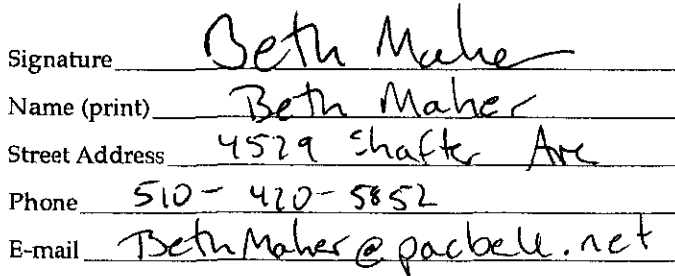 Signature Beth Maher
Name (print) Beth Maher
Street Address 4529 Shafter Ave
Phone 510-420-5852
E-mail BethMaher@pacbell.net